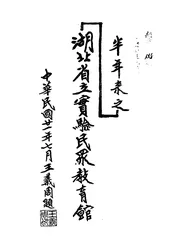 半年来之
湖北省立實驗民眾教育館
中華民國廿一年七月王義周題